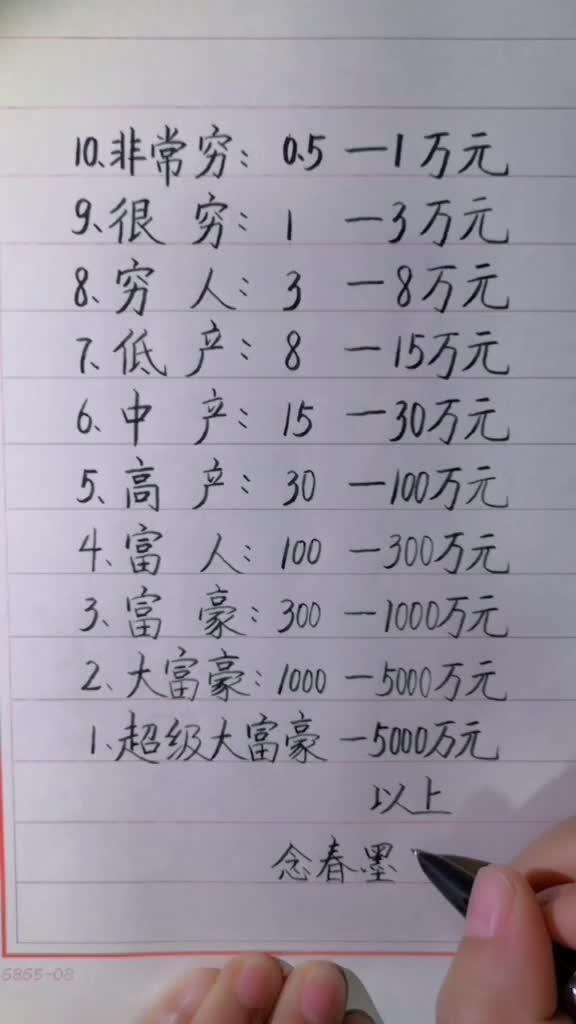 10、非常穷：0.5 —1万元
9、很 穷：1 —3万元
8、穷 人：3 —8万元
7、低 产：8 —15万元
6、中 产：15 —30万元
5、高 产：30 —100万元
4、富 人：100 —300万元
3、富 豪：300 —1000万元
2、大富豪：1000 —5000万元
1、超级大富豪 —5000万元
以上
念春墨
6865-08